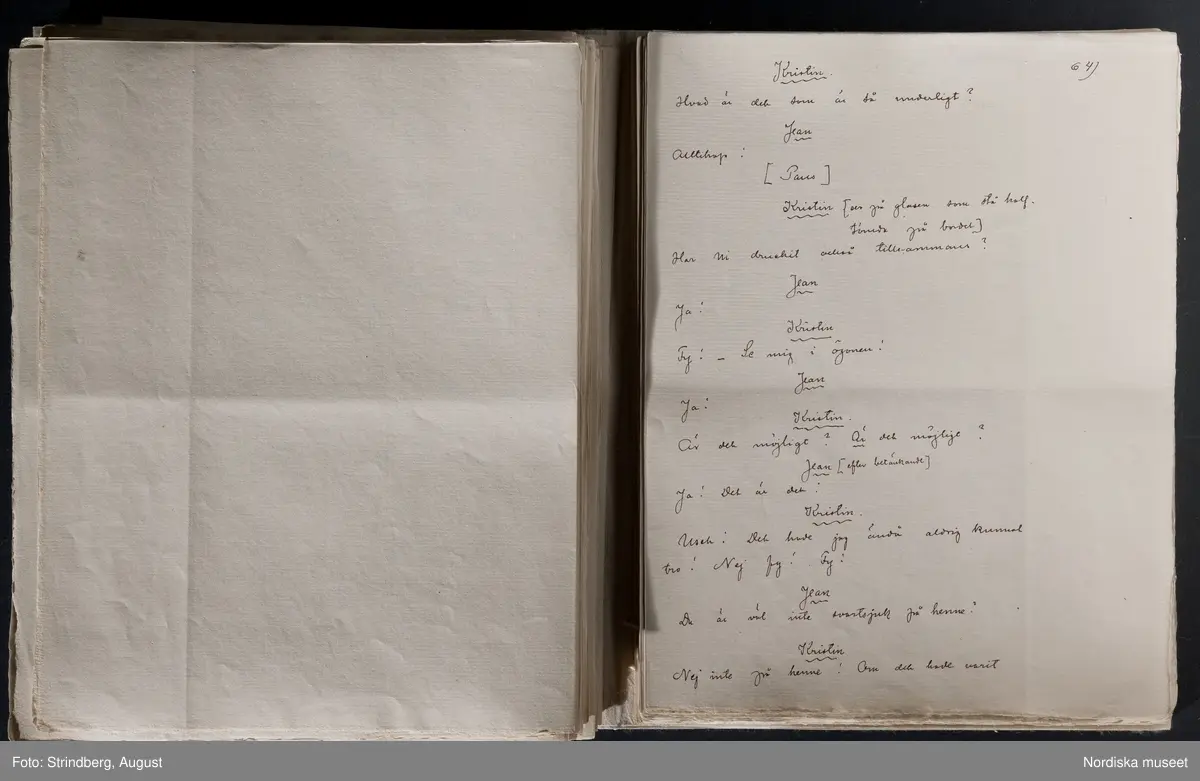 64)
Kristin.
Hvad är det som är så underligt?
Jean
Alltihop!
[Paus]
Kristin [ser på glasen som stå half-
tömda på bordet]
Har Ni druckit också tillsammans?
Jean
Ja!
Kristin
Fy! – Se mig i ögonen!
Jean
Ja!
Kristin.
Är det möjligt? Är det möjligt?
Jean [efter betänkande]
Ja! Det är det!
Kristin.
Usch! Det hade jag ändå aldrig kunnat
tro! Nej fy! Fy!
Jean
Du är väl inte svartsjuk på henne?
Kristin
Nej inte på henne! Om det hade varit
Foto: Strindberg, August
Nordiska museet